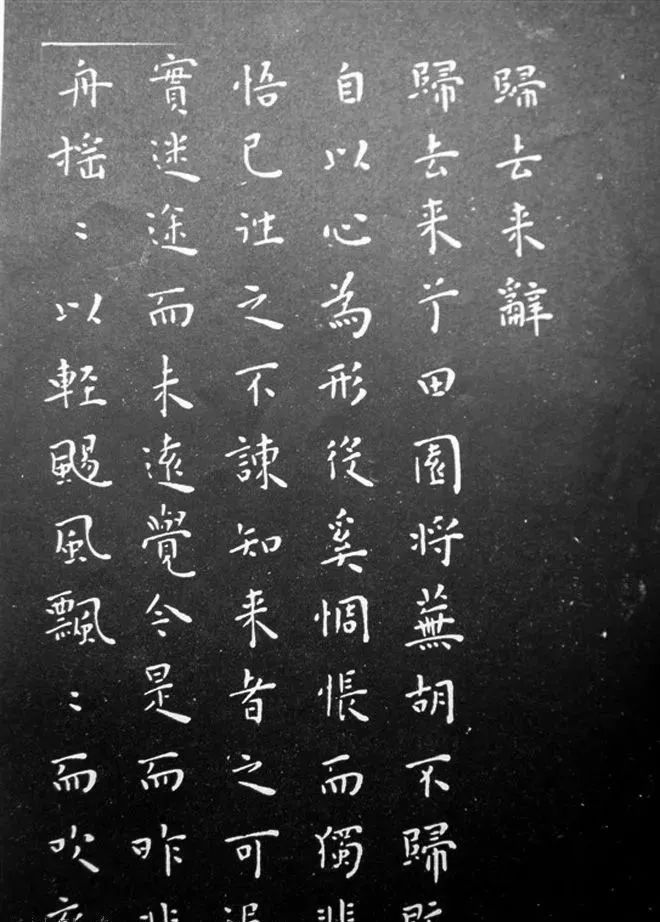 歸去来辭
歸去来兮田園将蕪胡不歸既
自以心為形役奚惆悵而獨悲
悟已往之不諫知来者之可追
實迷途而未遠覺今是而昨非
舟揺〻以輕颺風飄〻而吹衣